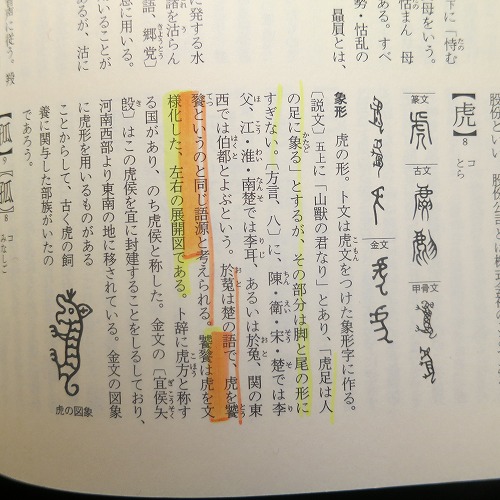 下に「恃む
母をいう。
ある。すべ
怙まん 母
勢・怙乱の
贔屓とは、
に発する水
諸を沽らん
語、郷党〕
意に用いる。
いることが
あるが、沽に
に従う。
【虎】8 コ とら
篆文
古文
金文
甲骨文
象形 虎の形。卜文は虎文をつけた象形字に作る。
〔説文〕五上に「山獸の君なり」とあり、「虎足は人
の足に象る」とするが、その部分は脚と尾の形に
すぎない。〔方言、八〕に、陳・衛・宋・楚では李
父、江・淮・南楚では李耳、あるいは於菟、関の東
西では伯都とよぶという。於菟は楚の語で、虎を饕
餮というのと同じ語源と考えられる。饕餮は虎を文
様化した、左右の展開図である。卜辞に虎方と称す
る国があり、のち虎侯と称した。金文の〔宜侯夨
𣪘〕はこの虎侯を宜に封建することをしるしており、
河南西部より東南の地に移されている。金文の図象
に虎形を用いるものがある
ことからして、古く虎の飼
養に関与した部族がいたの
であろう。
虎の図象
【孤】9【孤】8 コ みなしご